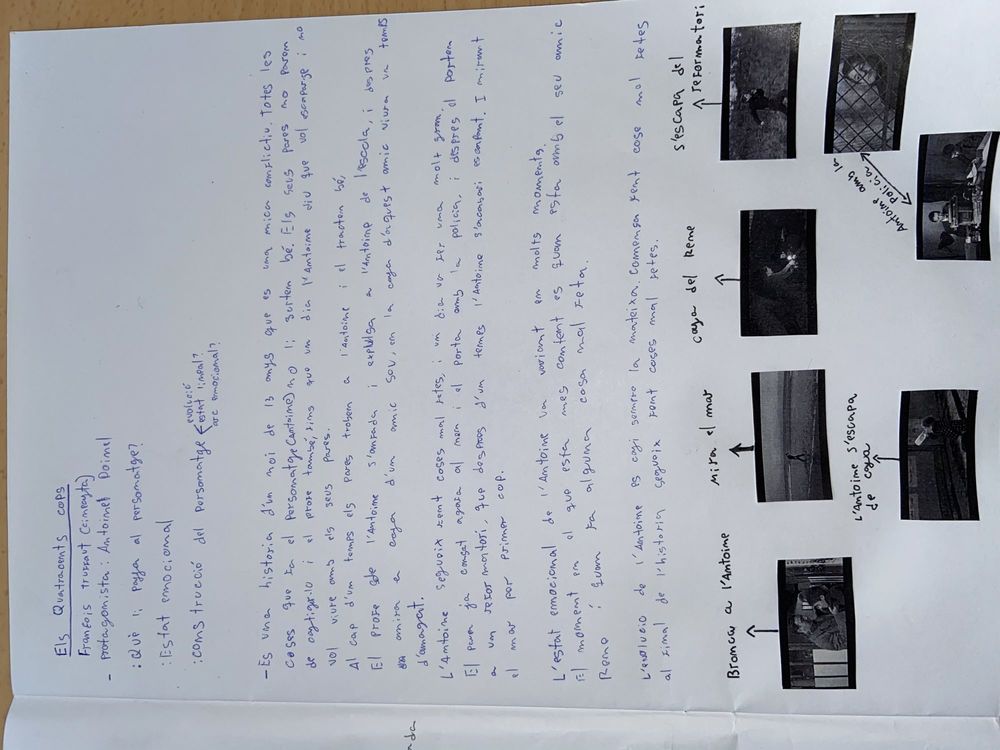 Els Quatracents cops
François truffaut (cineasta)
- protagonista: Antoinet Doinel
: Què li passa al personatge?
: Estat emocional
: construcció del Personatge
evolució
estat lineal?
arc emocional?
- Es una historia d'un noi de 13 anys que es una mica conflictiu. Totes les
coses que fa el personatge (Antoine) no li surten bé. Els seus pares no paren
de castigar-lo i el profe també, fins que un dia l'Antoine diu que vol escapar-se i no
vol viure amb els seus pares.
Al cap d'un temps els pares troben a l'Antoine i el tracten bé,
El profe de l'Antoine s'enfada i expulsa a l'Antoine de l'escola, i despres
anira a casa d'un amic seu, en la casa d'aquest amic viura un temps
d'amagat.
L'Antoine segueix fent coses mal fetes, i un dia va fer una molt gran.
El pare ja cansat agafa al nen i el porta amb la policia, i despres el porten
a un reformatori, que despres d'un temps l'Antoine s'acabari escapant. I mirant
el mar per primer cop.
L'estat emocional de l'Antoine va variant en molts moments.
El moment en el que esta mes content es quan esta amb el seu amic
Rene i quan fa alguna cosa mal feta.
L'evolucio de l'Antoine es casi sempre la mateixa. Comença fent cose mal fetes
al final de l'historia segueix fent coses mal fetes.
Bronca a l'Antoine
Mira el mar
casa del Rene
s'escapa del
reformatori
L'Antoine s'escapa
de casa
Antoine amb la
policia